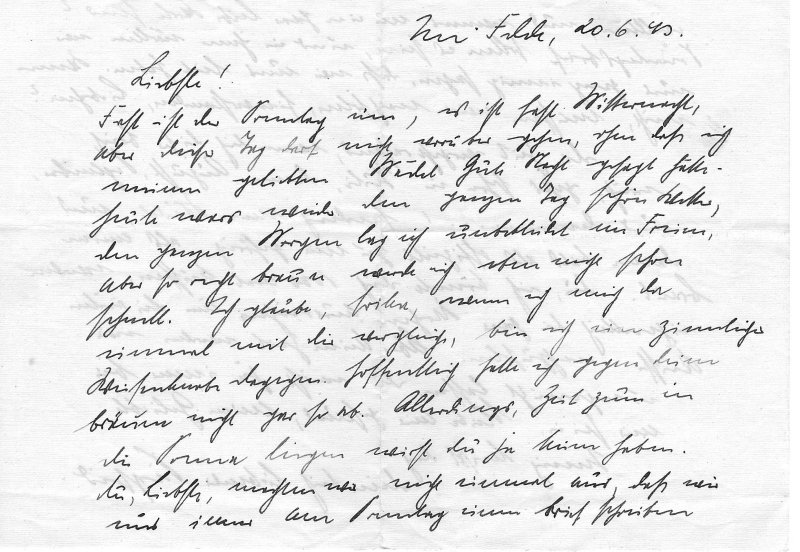 Im Felde, 20.6.43.
Liebste!
Fast ist der Sonntag um, es ist fast Mitternacht,
aber dieser Tag darf nicht vorüber gehen, ohne daß ich
meinem geliebten Mädel Gute Nacht gesagt hätte.
Heute wars wieder den ganzen Tag schön Wetter,
den ganzen Morgen lag ich unbekleidet im Freien,
aber so recht braun werde ich eben nicht schon
schnell. Ich glaube, Erika, wenn ich mich da
einmal mit dir vergleiche, bin ich ein ziemlicher
dagegen. Hoffentlich falle ich gegen deine
bräune nicht gar so ab. Allerdings, Zeit zum in
die Sonne liegen wirst du ja kaum haben.
du, Liebste, machten wir nicht einmal aus, daß wir
uns immer am Sonntag einen brief schreiben